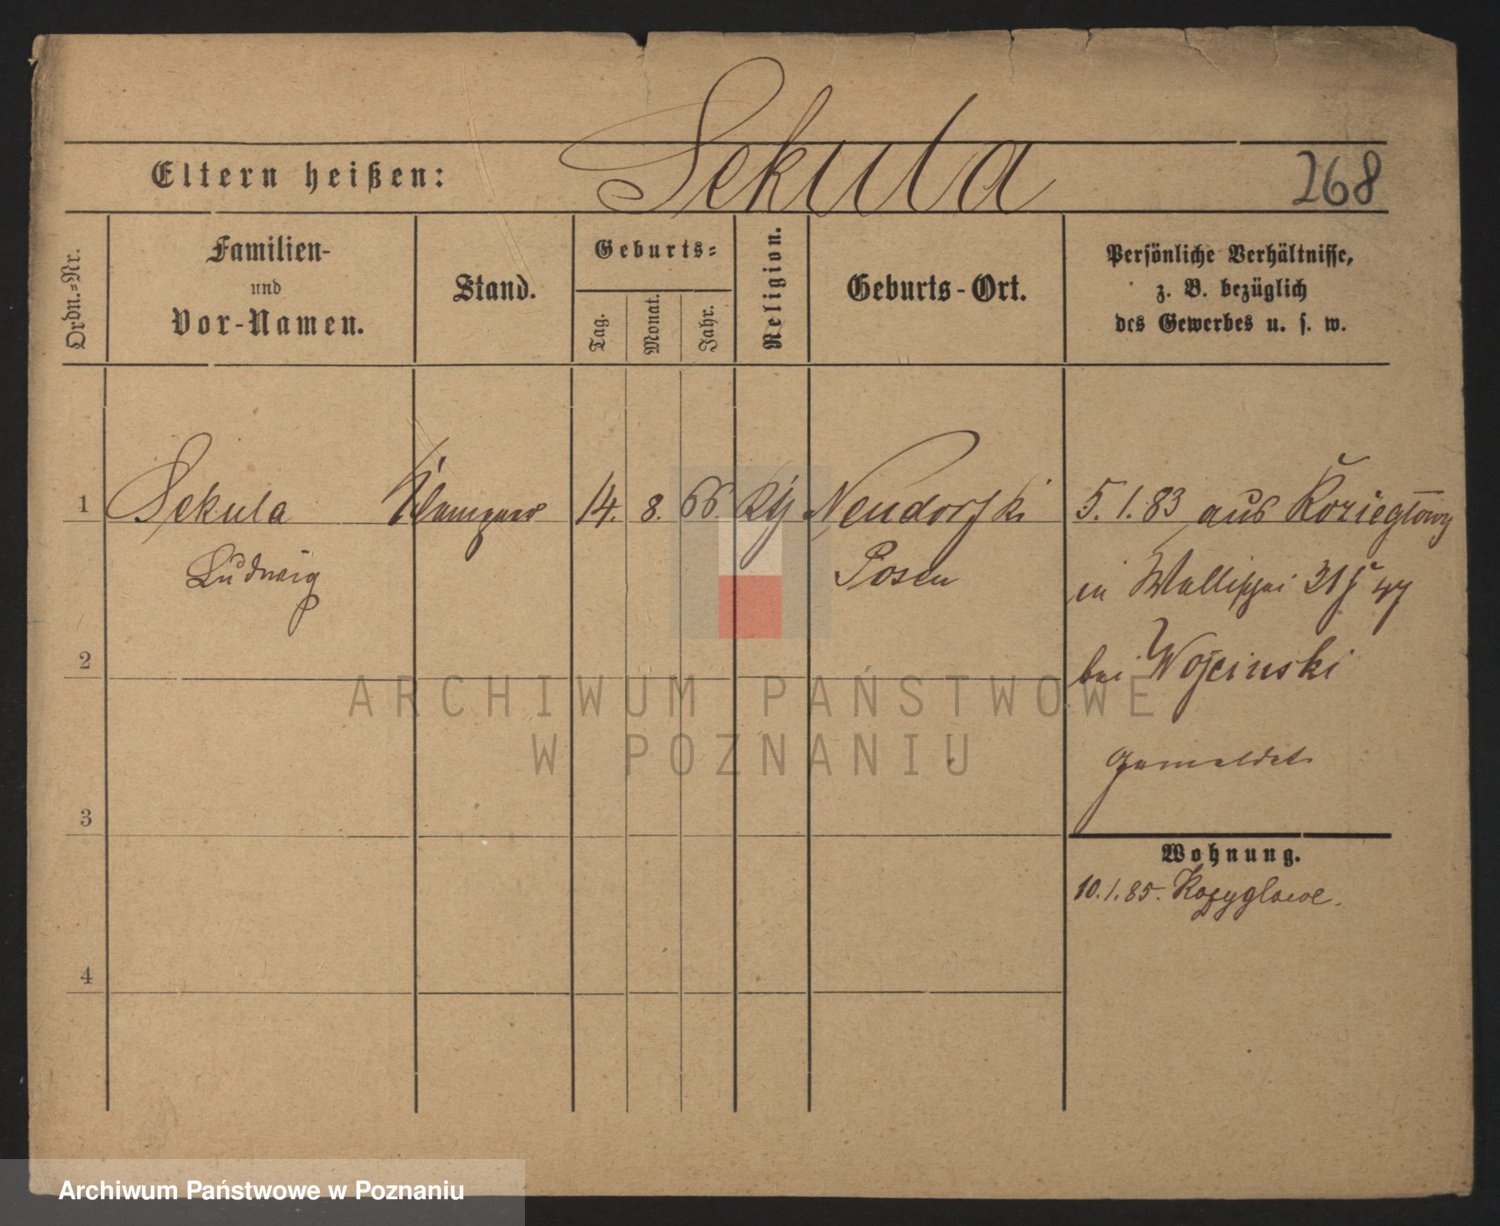 Sekula
Eltern heißen:
268
Ordn.-Nr.
Familien-
und
Vor-Namen.
Stand.
Geburts-
Tag.
Monat.
Jahr.
Religion.
Geburts-Ort.
Persönliche Verhältnisse,
z. B. bezüglich
des Gewerbes u. s. w.
1 Sekula 14. 8. 66. Neudorf 5. 1. 83 aus
Ludwig Posen in Wallischei 31
2 bei Wojcinski
gemeldet
3
Wohnung.
10. 1. 85.
4
ARCHIWUM PAŃSTWOWE
W POZNANIU
Archiwum Państwowe w Poznaniu